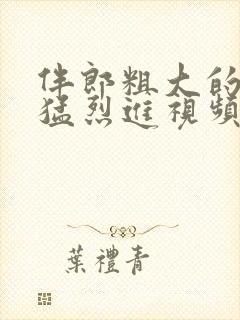 伴郎粗大的
猛烈進視頻
葉禮青